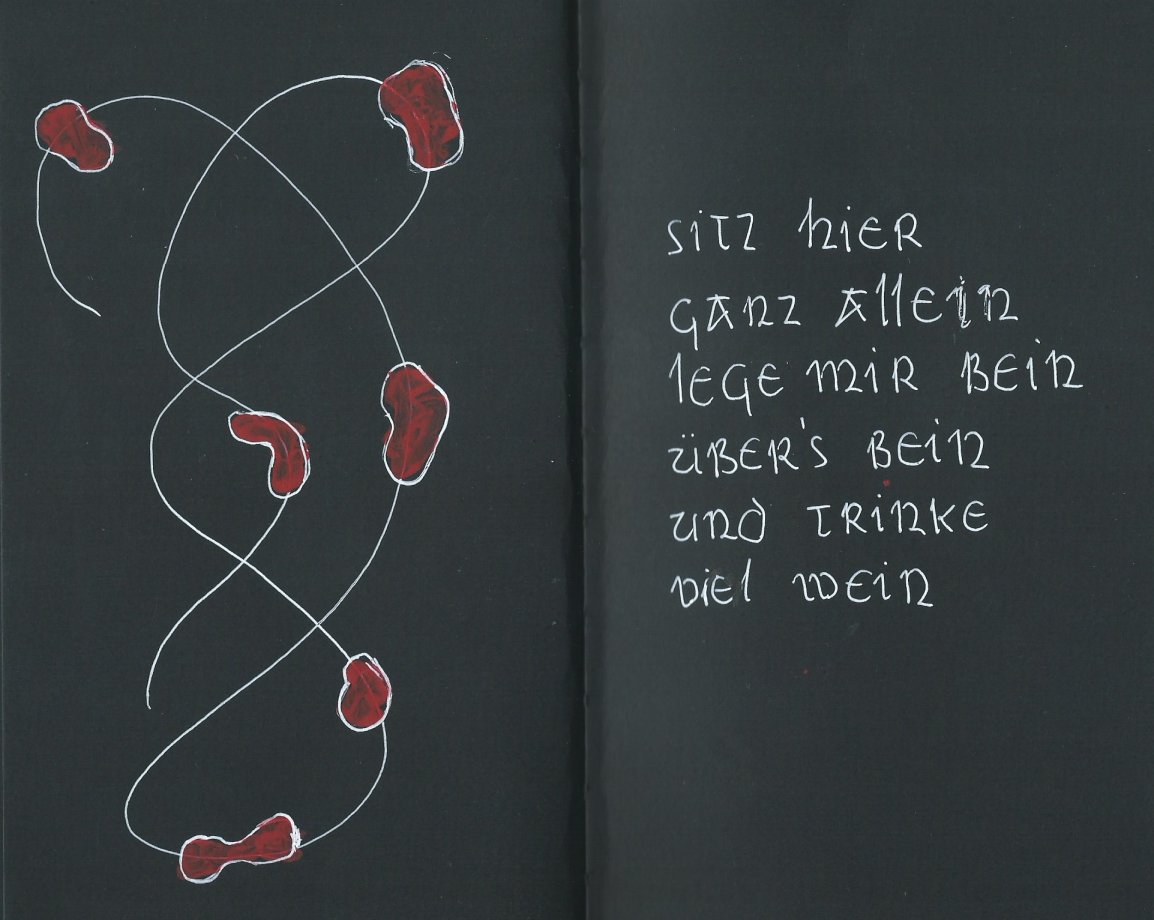 sitz hier
ganz allein
lege mir bein
über's bein
und trinke
viel wein